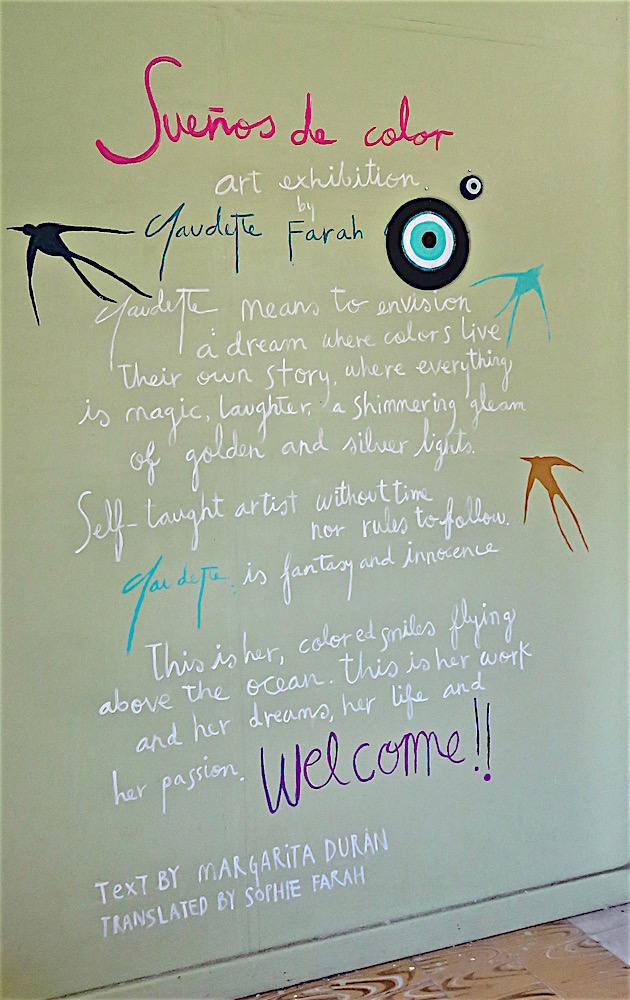 Sueños de color
art exhibition.
by
Yaudette Farah
Yaudette means to envision
a dream where colors live
their own story, where everything
is magic, laughter, a shimmering gleam
of golden and silver lights.
Self-taught artist without time
nor rules to follow.
Yaudette: is fantasy and innocence
This is her, colored smiles flying
above the ocean. This is her work
and her dreams, her life and
her passion. Welcome!!
TEXT BY MARGARITA DURÁN
TRANSLATED BY SOPHIE FARAH